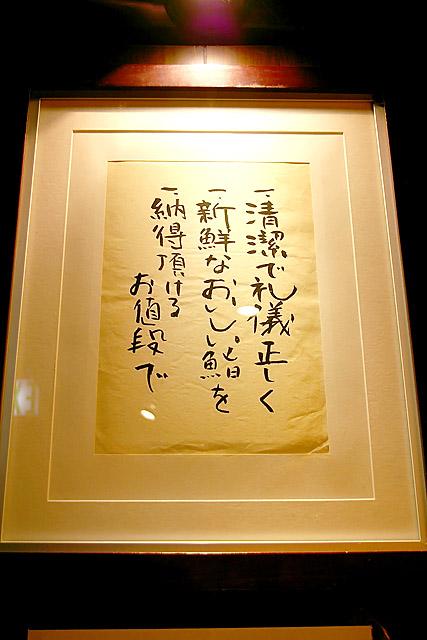 一、清潔で礼儀正しく
一、新鮮なおいしい鮨を
一、納得頂ける
お値段で